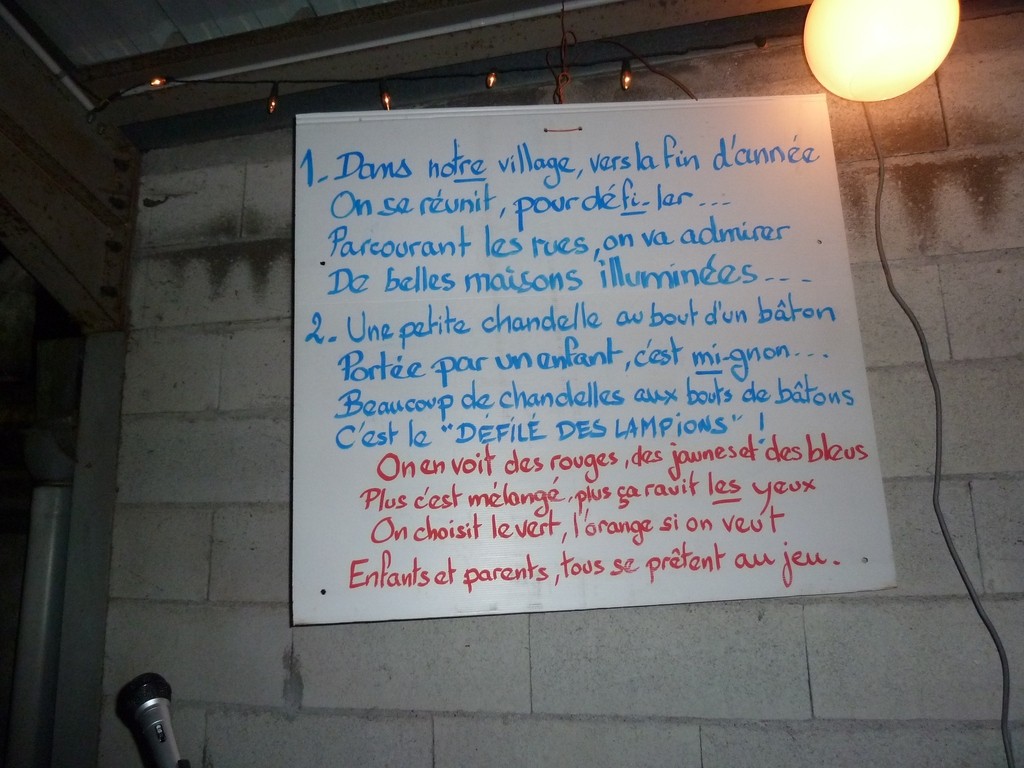 1. Dans notre village, vers la fin d'année
On se réunit, pour défi-ler...
Parcourant les rues, on va admirer
De belles maisons illuminées....
2. Une petite chandelle au bout d'un bâton
Portée par un enfant, c'est mi-gnon...
Beaucoup de chandelles aux bouts de bâtons
C'est le "DEFILÉ DES LAMPIONS" !
On en voit des rouges, des jaunes et des bleus
Plus c'est mélangé, plus ça ravit les yeux
On choisit le vert, l'orange si on veut
Enfants et parents, tous se prêtent au jeu.